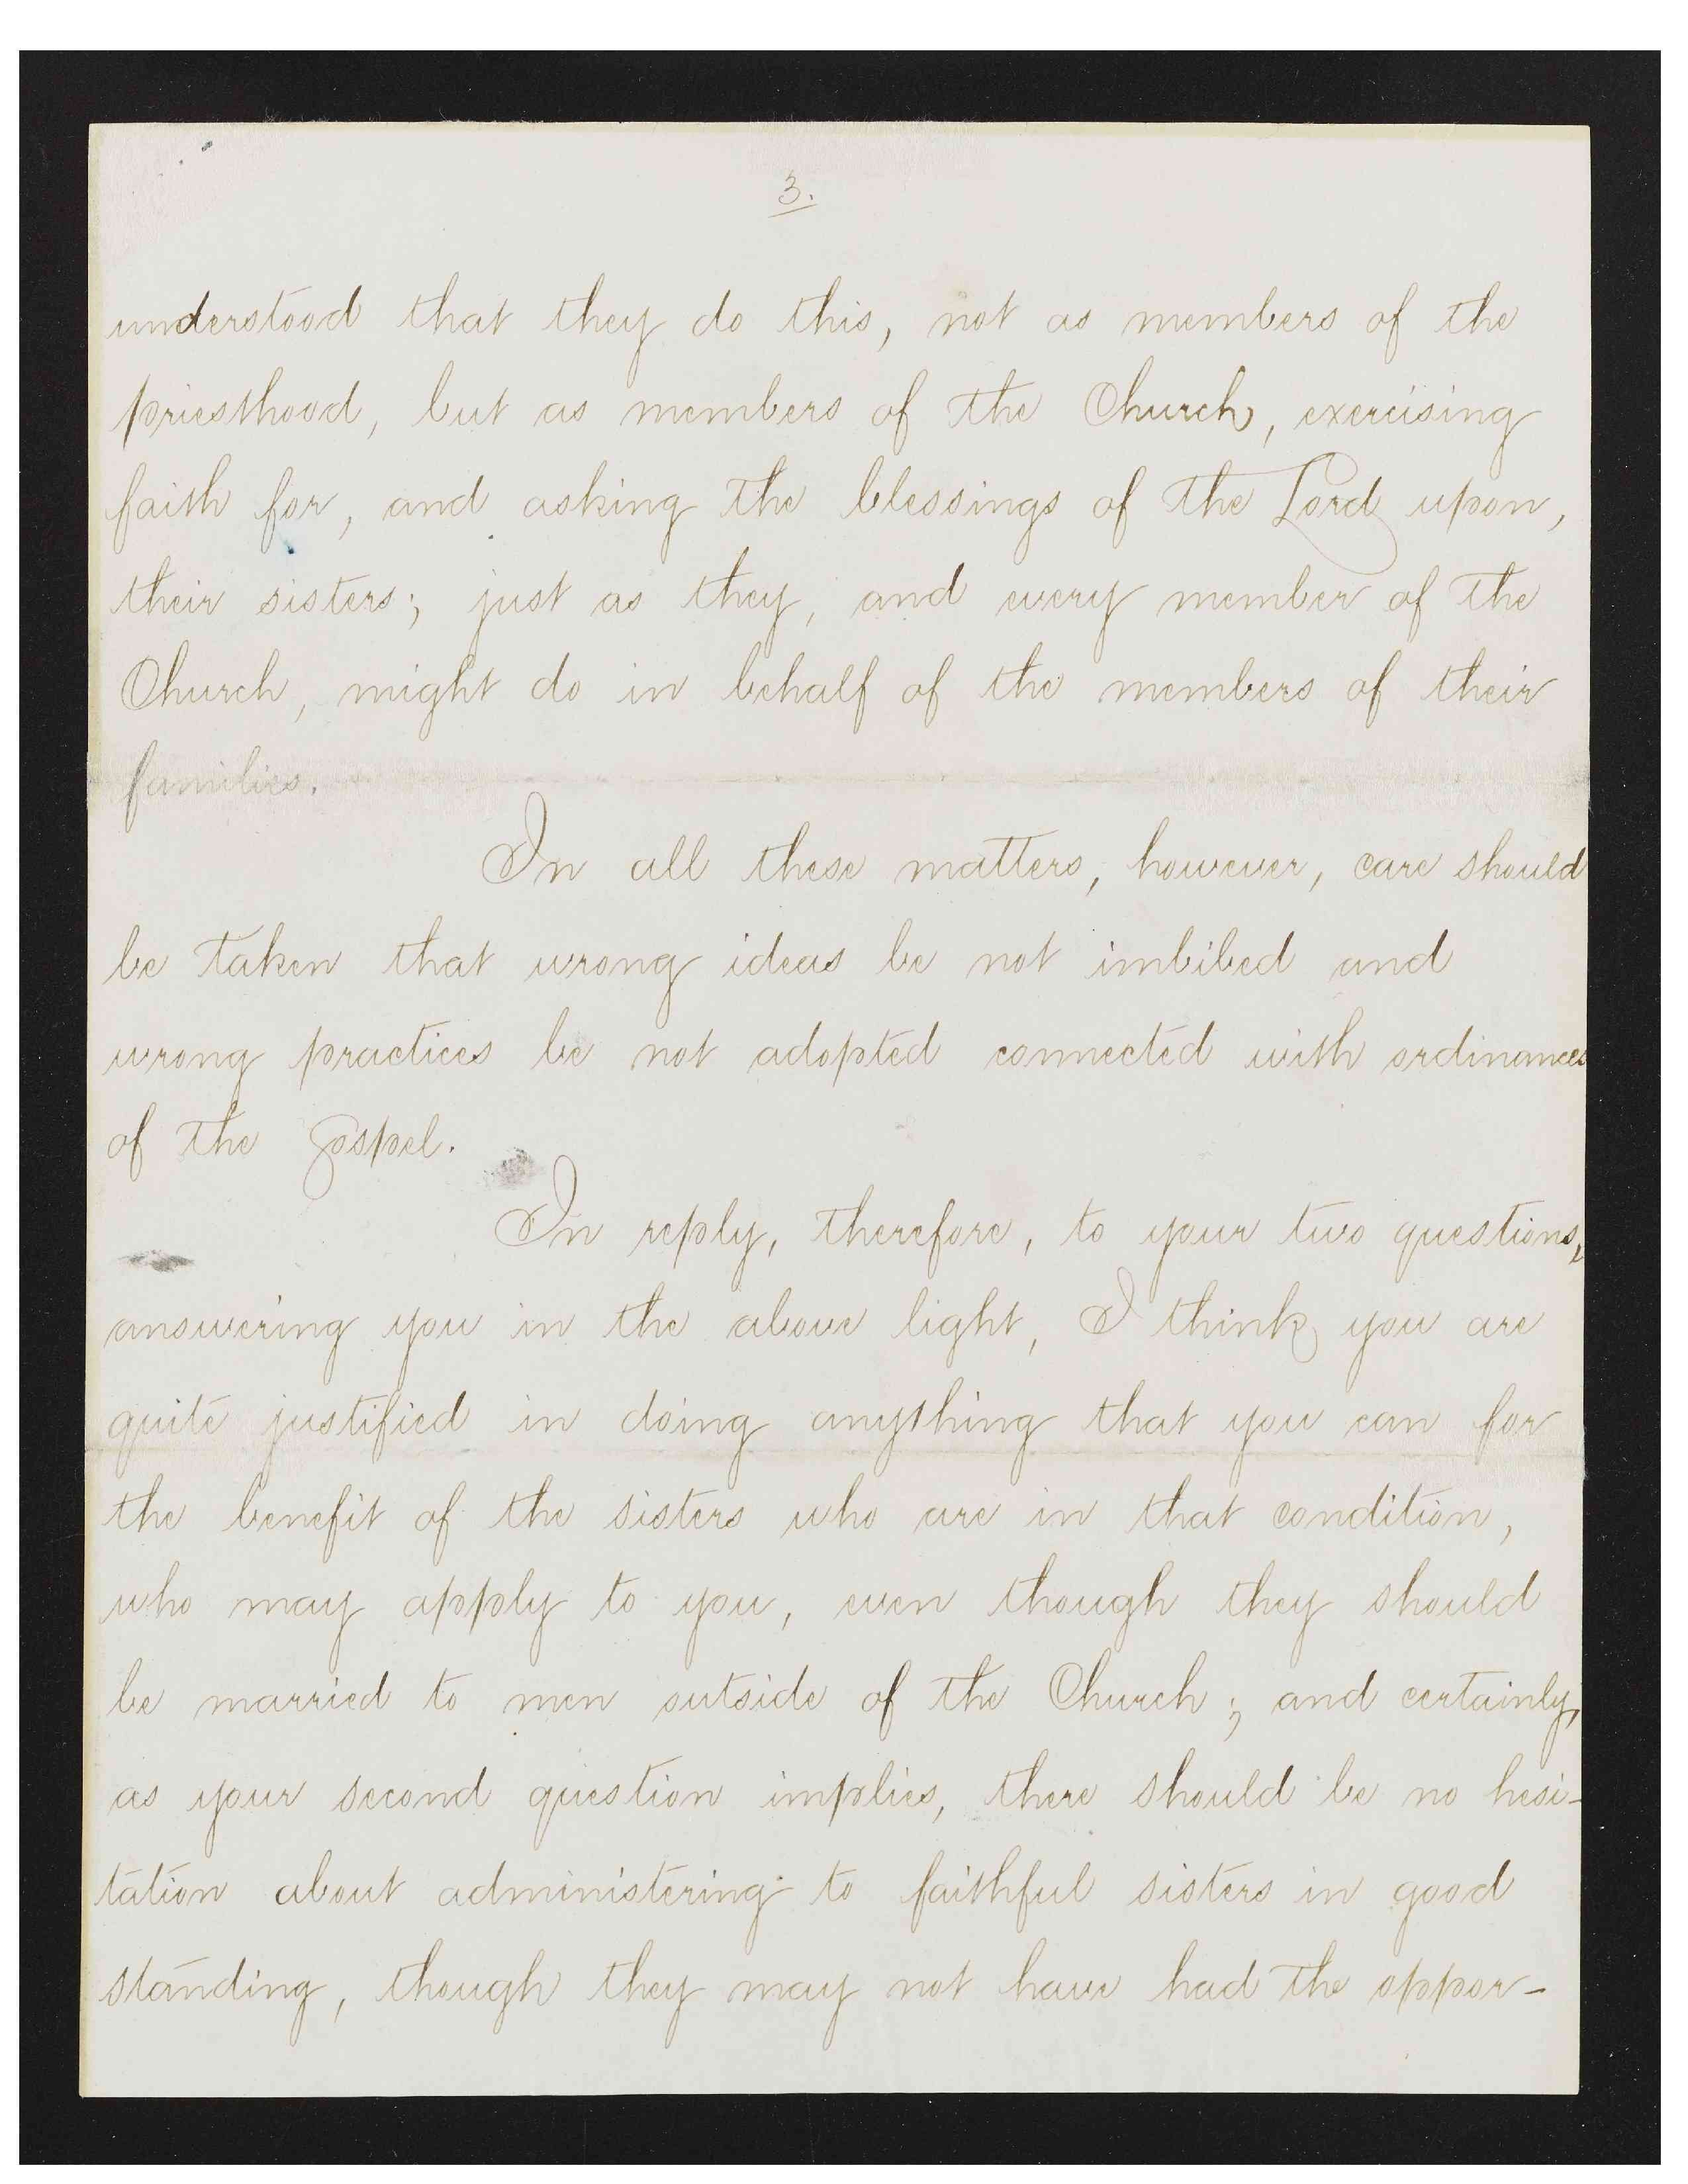 3.
understood that they do this, not as members of the
priesthood, but as members of the Church, exercising
faith for, and asking the blessings of the Lord upon,
their sisters; just as they, and every member of the
Church, might do in behalf of the members of their
families.
In all these matters, however, care should
be taken that wrong ideas be not imbibed and
wrong practices be not adopted connected with ordinances
of the gospel.
In reply, therefore, to your two questions,
answering you in the above light, I think you are
quite justified in doing anything that you can for
the benefit of the sisters who are in that condition,
who may apply to you, even though they should
be married to men outside of the Church; and certainly,
as your second question implies, there should be no hesi-
tation about administering to faithful sisters in good
standing, though they may not have had the oppor-